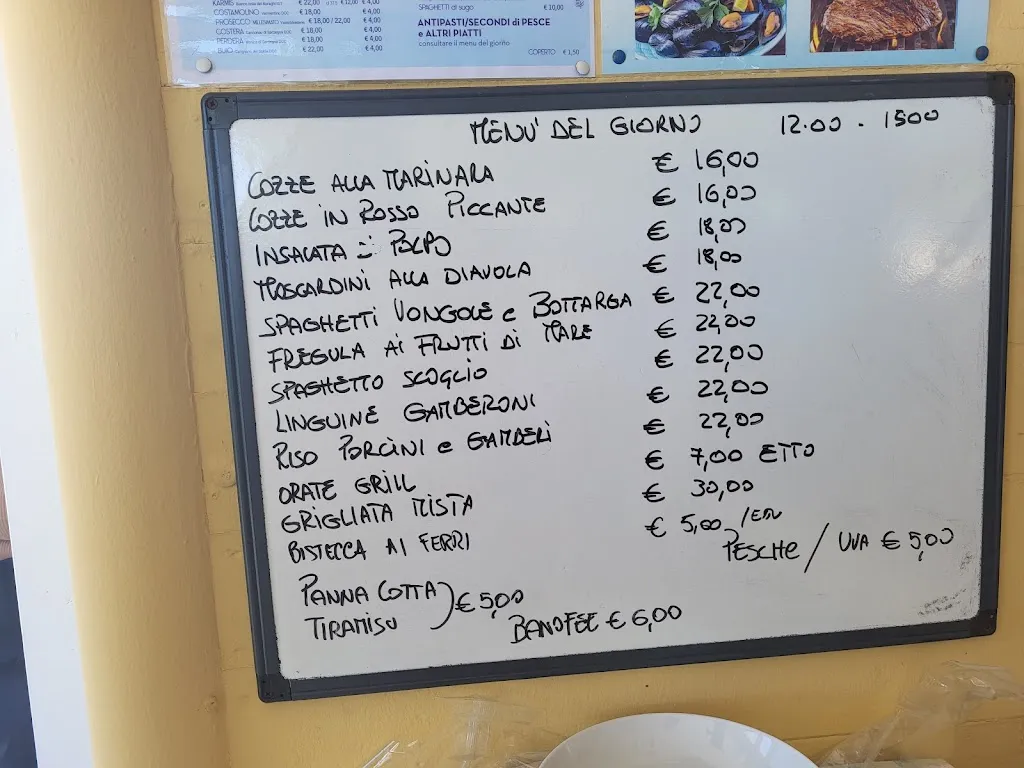 KARMIS € 22,00 € 12,00 € 4,00
COSTAMOLINO € 18,00 € 4,00
PROSECCO MILLESIMATO € 18,00 / 22,00 € 4,00
COSTERA € 18,00 € 4,00
PERDERA € 18,00 € 4,00
BUIO € 22,00 € 4,00
SPAGHETTI al sugo € 10,00
ANTIPASTI/SECONDI di PESCE
e ALTRI PIATTI
consultare il menu del giorno
COPERTO € 1,50
MENU' DEL GIORNO 12.00 - 1500
COZZE ALLA MARINARA € 16,00
COZZE IN ROSSO PICCANTE € 16,00
INSALATA di POLPO € 18,00
MOSCARDINI ALLA DIAVOLA € 18,00
SPAGHETTI VONGOLE e BOTTARGA € 22,00
FREGULA AI FRUTTI DI MARE € 22,00
SPAGHETTO SCOGLIO € 22,00
LINGUINE GAMBERONI € 22,00
RISO PORCINI e GAMBERI € 22,00
ORATE GRILL € 7,00 ETTO
GRIGLIATA MISTA € 30,00
BISTECCA AI FERRI € 5,00
PESCHE / UVA € 5,00
PANNA COTTA
TIRAMISU
) € 5,00
BANOFEE € 6,00